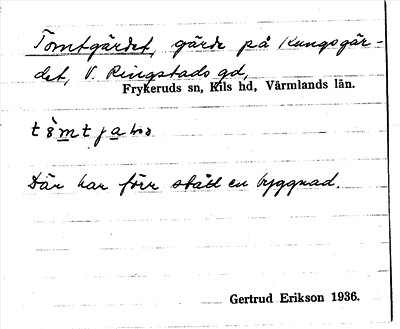 Tomtgärdet, gärde på Kungsgär-
det, V. Ringstads gd,
Frykeruds sn, Kils hd, Värmlands län.
Där har förr stått en byggnad.
Gertrud Erikson 1936.